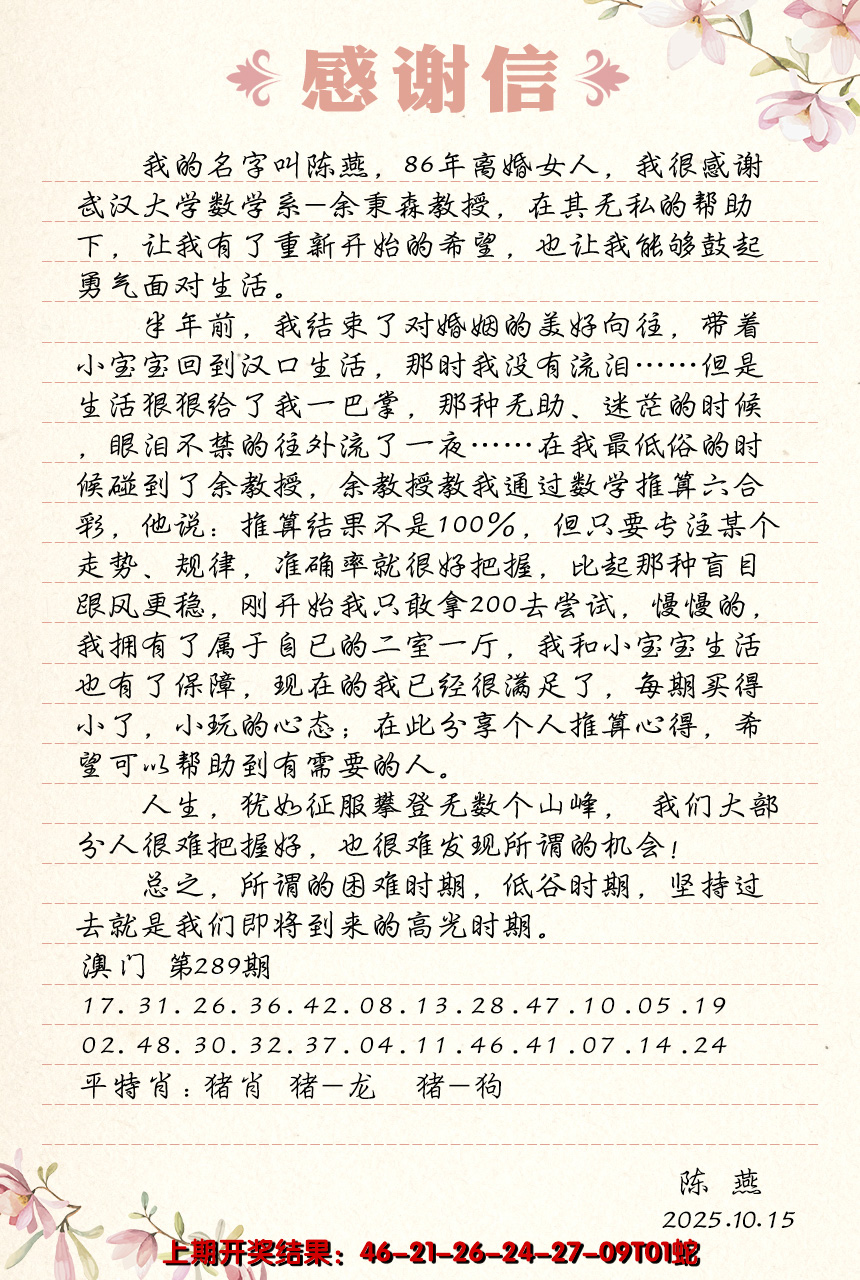 感谢信
我的名字叫陈燕，86年离婚女人，我很感谢
武汉大学数学系—余秉森教授，在其无私的帮助
下，让我有了重新开始的希望，也让我能够鼓起
勇气面对生活。
半年前，我结束了对婚姻的美好向往，带着
小宝宝回到汉口生活，那时我没有流泪……但是
生活狠狠给了我一巴掌，那种无助、迷茫的时候
，眼泪不禁的往外流了一夜……在我最低俗的时
候碰到了余教授，余教授教我通过数学推算六合
彩，他说：推算结果不是100%，但只要专注某个
走势、规律，准确率就很好把握，比起那种盲目
跟风更稳，刚开始我只敢拿200去尝试，慢慢的，
我拥有了属于自已的二室一厅，我和小宝宝生活
也有了保障，现在的我已经很满足了，每期买得
小了，小玩的心态；在此分享个人推算心得，希
望可以帮助到有需要的人。
人生，犹如征服攀登无数个山峰， 我们大部
分人很难把握好，也很难发现所谓的机会！
总之，所谓的困难时期，低谷时期，坚持过
去就是我们即将到来的高光时期。
澳门 第289期
17.31.26.36.42.08.13.28.47.10.05.19
02.48.30.32.37.04.11.46.41.07.14.24
平特肖：猪肖 猪—龙 猪—狗
陈 燕
2025.10.15
上期开奖结果：46-21-26-24-27-09T01蛇